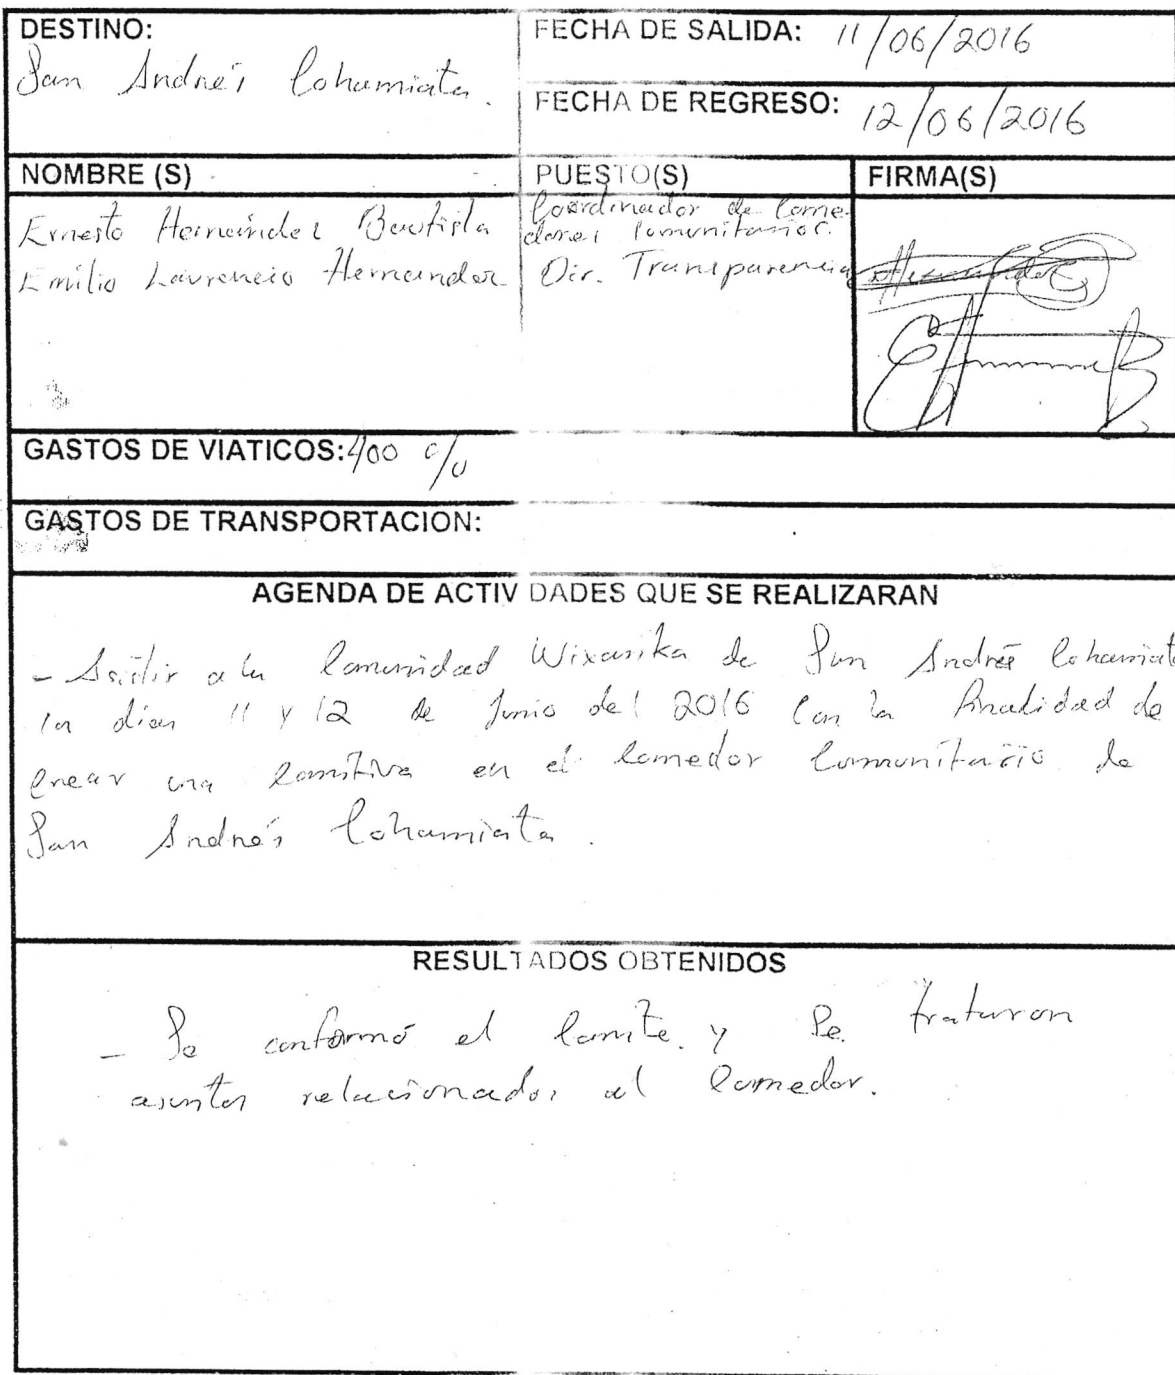 DESTINO:
San Andrés Cohamiata.
FECHA DE SALIDA: 11/06/2016
FECHA DE REGRESO: 12/06/2016
NOMBRE (S)
PUESTO(S)
FIRMA(S)
Ernesto Hernández Bautista
Coordinador de Come-
dores Comunitarios.
Emilio Laurencio Hernandez.
Dir. Transparencia
GASTOS DE VIATICOS: 400 c/u
GASTOS DE TRANSPORTACION:
AGENDA DE ACTIVIDADES QUE SE REALIZARAN
- Asistir a la Comunidad Wixarika de San Andrés Cohamiata
los dias 11 y 12 de Junio del 2016 Con la finalidad de
crear una en el Comedor Comunitario de
San Andrés Cohamiata.
RESULTADOS OBTENIDOS
- Se conformó el Comite. y Se trataron
asuntos relacionados al Comedor.